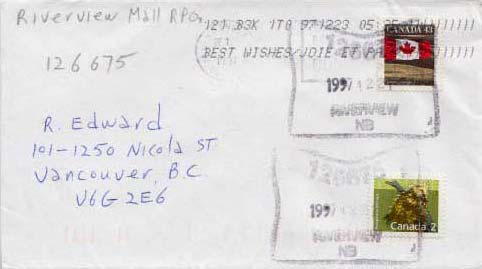 Riverview Mall RPG
126675
121 B3K 1T0 971223 05:25
BEST WISHES/JOIE ET P
CANADA 43
126675
1997 12 2
RIVERVIEW
NB
R. Edward
101-1250 Nicola ST
Vancouver, B.C.
V6G 2E6
1997
RIVERVIEW
NB
Canada 2